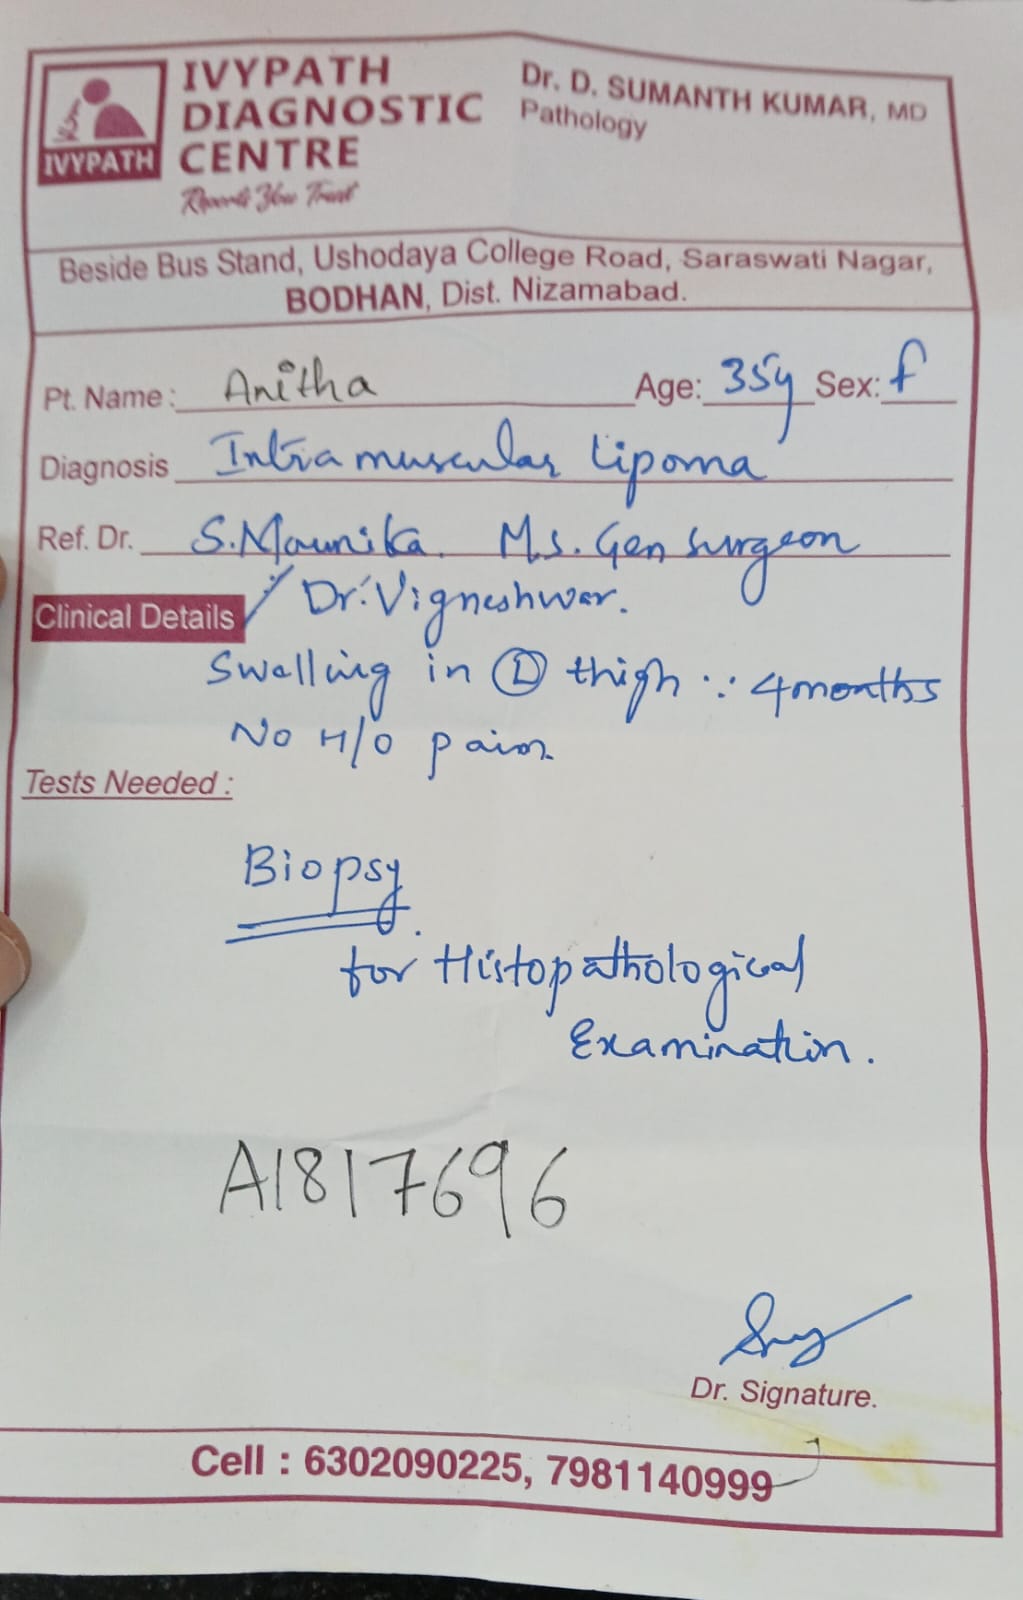 IVYPATH
DIAGNOSTIC
CENTRE
Reports You Trust
IVYPATH
Dr. D. SUMANTH KUMAR, MD
Pathology
Beside Bus Stand, Ushodaya College Road, Saraswati Nagar,
BODHAN, Dist. Nizamabad.
Pt. Name: Anitha Age: 35y Sex: f
Diagnosis Intramuscular lipoma
Ref. Dr. S. Mounika. M.s. Gen surgeon
/ Dr. Vigneshwar.
Clinical Details
Swelling in Ⓛ thigh ∵ 4 months
No H/O pain
Tests Needed :
Biopsy
for Histopathological
Examination.
A1817696
Dr. Signature.
Cell : 6302090225, 7981140999